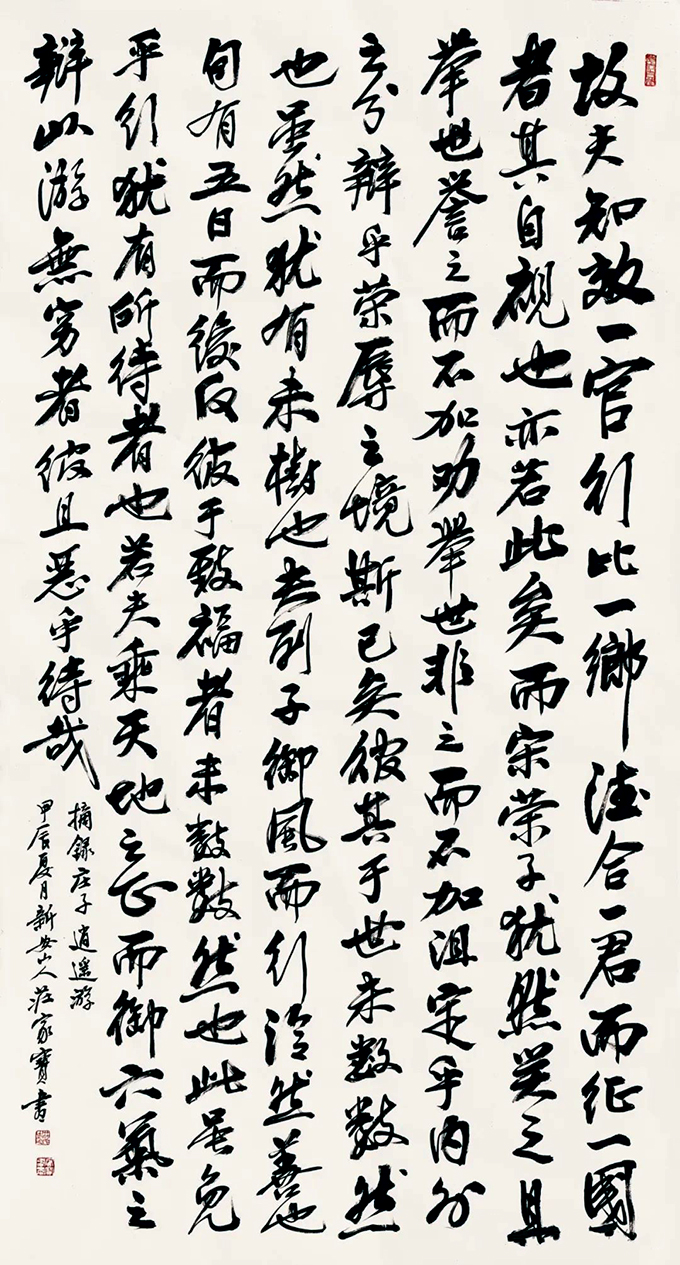 故夫知效一官行比一鄉德合一君而征一國
者其自視也亦若此矣而宋榮子犹然笑之且
舉世誉之而不加劝舉世非之而不加沮定乎内外
之分辯乎荣辱之境斯已矣彼其于世未数数然
也虽然犹有未樹也夫列子御風而行泠然善也
旬有五日而後反彼于致福者未数数然也此虽免
乎行犹有所待者也若夫乘天地之正而御六氣之
辯以游無穷者彼且恶乎待哉
摘録庄子逍遥游
甲辰夏月新安山人莊家寶書